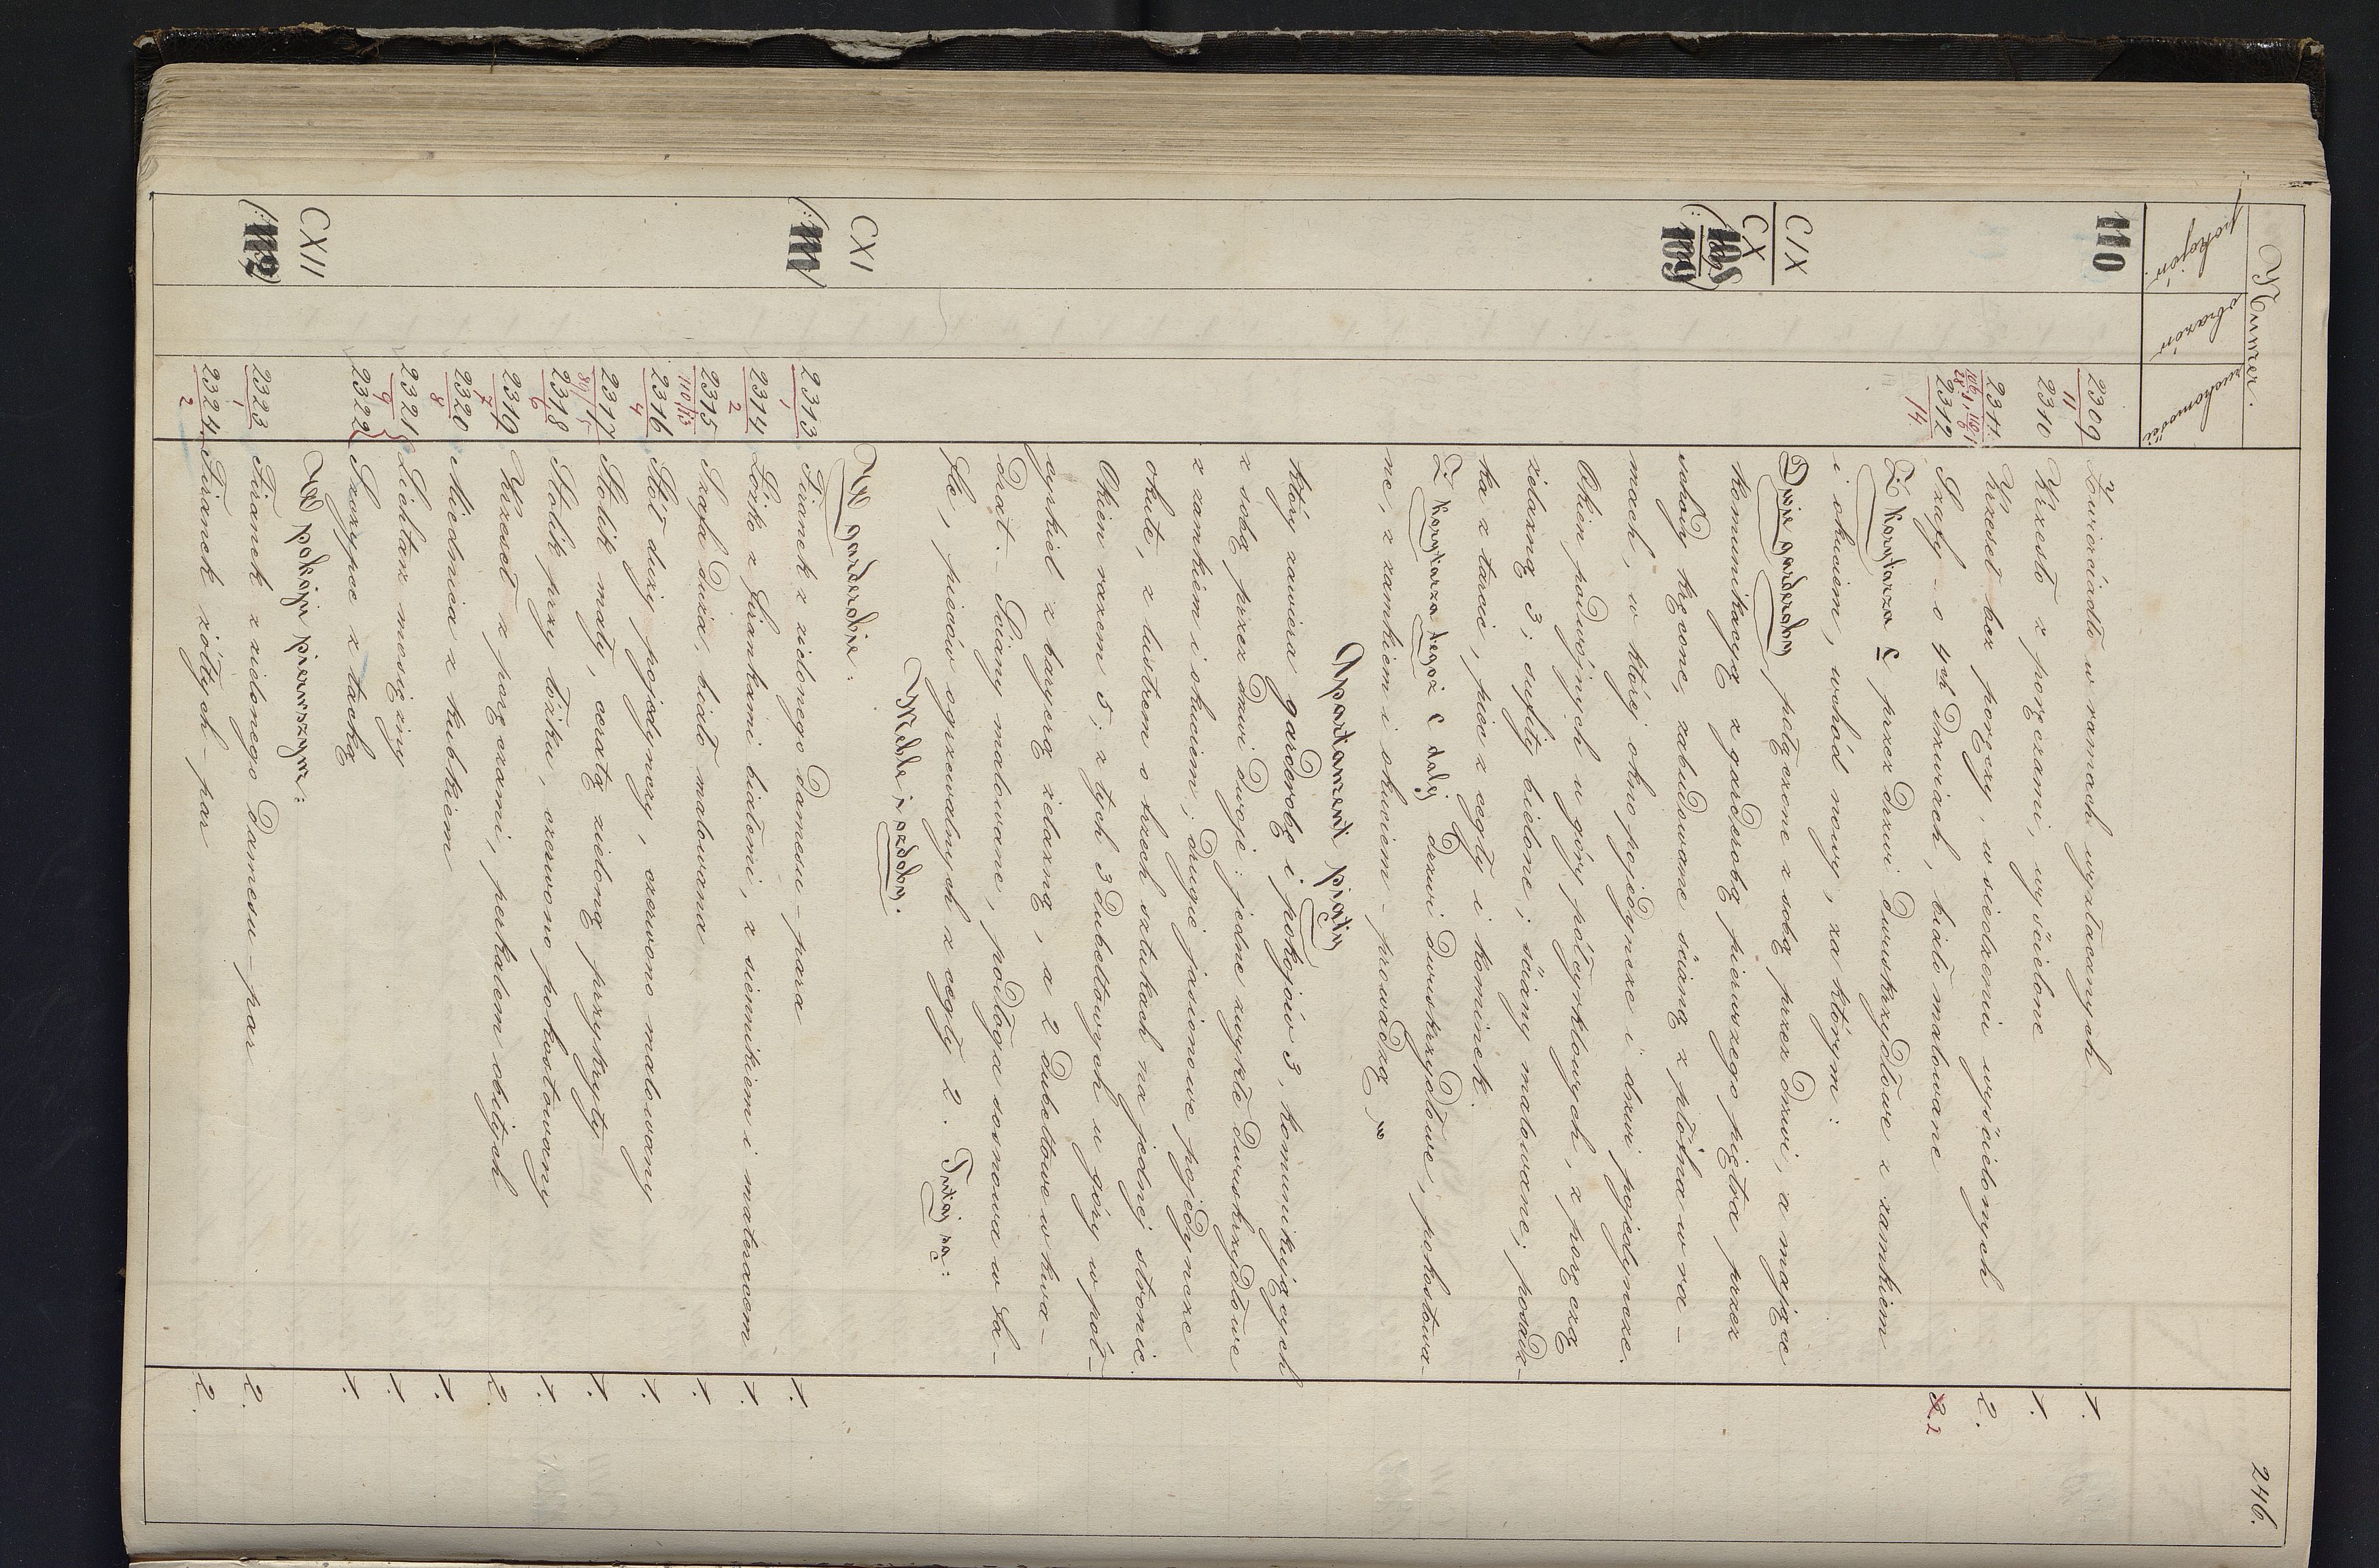 246.
Numer.
pokojów. obrazów ruchomości
110 2309 11 Zwierciadło w ramach wyzłacanych 1.
2310 Krzesło z poręczami, wyścielone 1.
2311. Krzeseł bez poręczy, w siedzeniu wyścielonych 2.
2312 14 Szafy - o 4ch drzwiach, biało malowane 2
Z korytarza C przez drzwi dwuskrzydłowe z zamkiem
i okuciem, wchód nowy, za którym:
CIX Dwie garderoby, połączone z sobą przez drzwi, a mające
CX komunikacyą z garderobą pierwszego piętra przez
(: 108 schody kręcone, zabudowane ścianą z płótna w ra-
109 mach, w której okno pojedyncze i drzwi pojedyncze.
Okien podwójnych u góry półcyrklowych, z poręczą
żelazną 3; sufity bielone; ściany malowane; posadz-
ka z tarcic, piec z cegły i kominek.
Z korytarza tegoż C dalej drzwi dwuskrzydłowe, pokostowa-
ne, z zamkiem i okuciem - prowadzą w
Apartament piąty
który zawiera garderobę i pokojów 3, komunikujących
z sobą przez drzwi dwoje: jedne zwykłe dwuskrzydłowe
z zamkiem i okuciem; drugie jasionowe pojedyncze
okute, z lustrem o trzech sztukach na jednej stronie.
Okien razem 5; z tych 3 dubeltowych u góry w pół-
cyrkiel z baryerą żelazną, a 2 dubeltowe w kwa-
drat. - Ściany malowane, podłoga sosnowa w ta-
fle, pieców ogrzewalnych z cegły 2. Tutaj są:
Meble i ozdoby.
CXI W garderobie:
(: 111 2313 1 Firanek z zielonego damesu - para 1.
2314 2 Łóżko z firankami białemi, z siennikiem i materacem 1.
2315 110/13 Szafa duża, biało malowana 1.
2316 4 Stół duży pojedynczy, czerwono malowany 1.
2317 5 Stolik mały, ceratą zieloną przykryty 1.
2318 6 Stolik przy łóżku, czerwono pokostowany 1.
2319 7 Krzeseł z poręczami, perkalem obitych 2.
2320 8 Miednica z kubkiem 1.
2321 9 Lichtarz mosiężny 1.
2322 Szczypce z tacką 1.
CXII W pokoju pierwszym:
(: 112 2323 1 Firanek z zielonego damesu - par 2.
2324 2 Firanek żółtych - par 2.